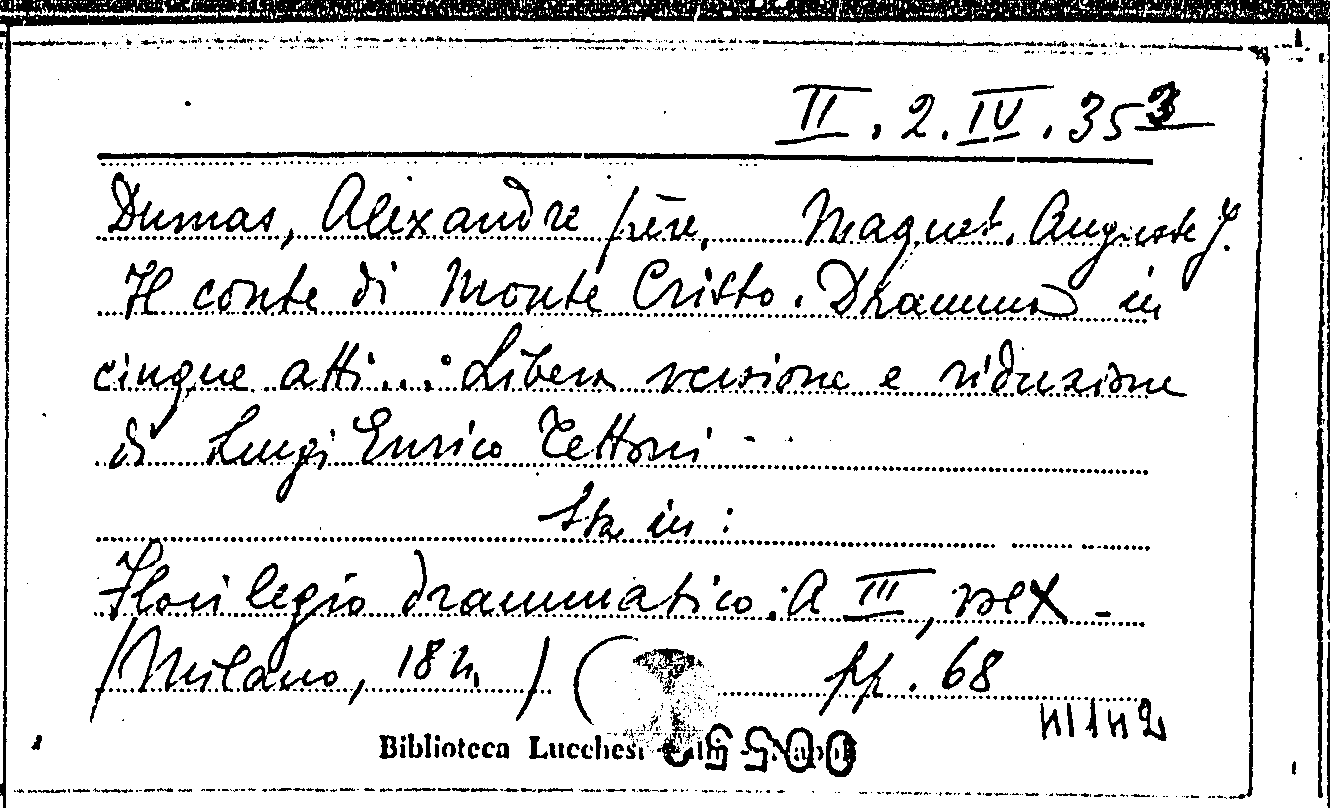 II. 2. IV. 353
Dumas, Alexandre père. Maquet, Auguste J.
Il conte di Monte Cristo. Dramma in
cinque atti...: Libera versione e riduzione
di Luigi Enrico Tettoni
Sta in:
Florilegio drammatico: A III, vol X -
(Milano, 18
) ( pp. 68
Biblioteca Lucchesi